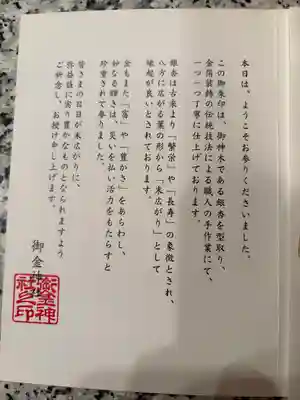 本日は、ようこそお参りくださいました。
この御朱印は、御神木である銀杏を型取り、
金箔装飾の伝統技法による職人の手作業にて、
一つ一つ丁寧に仕上げております。
銀杏は古来より「繁栄」や「長寿」の象徴とされ、
八方に広がる葉の形から「末広がり」として
縁起が良いとされております。
金もまた「富」や「豊かさ」をあらわし、
妙なる輝きは、災いを払い活力をもたらすと
珍重されて参りました。
皆さまの日日が末広がりに、
弥益誠に実り豊かなものとなられますよう
ご祈念し、お授け申し上げます。
御金神社
御金神
社之印